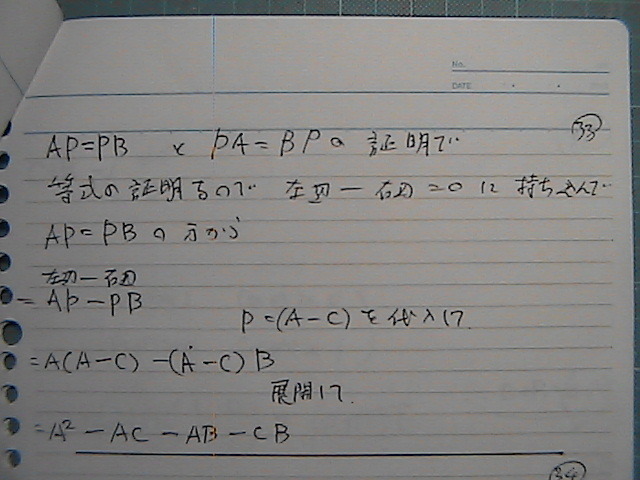 No.
DATE
33
AP=PB と PA=BPの 証明で
等式の証明するので 左辺-右辺=0に 持ち込んで
AP=PBの方から
左辺-右辺
= AP-PB
P=(A-C)を代入して
=A(A-C) -(A-C)B
展開して
=A² - AC - AB - CB
34